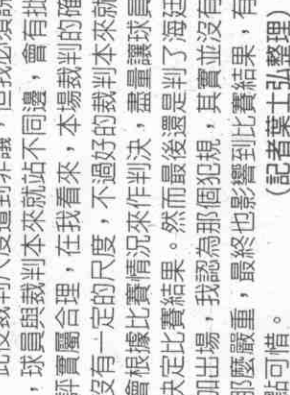 此役裁判尺度遭到非議，但我必須說
，球員與裁判本來就站不同邊，會有批
評實屬合理，在我看來，本場裁判的確
沒有一定的尺度，不過好的裁判本來就
會根據比賽情況來作判決，盡量讓球員
決定比賽結果。然而最後還是判了海廷
加出場，我認為那個犯規，其實並沒有
那麼嚴重，最終也影響到比賽結果，有
點可惜。　（記者葉士弘整理）